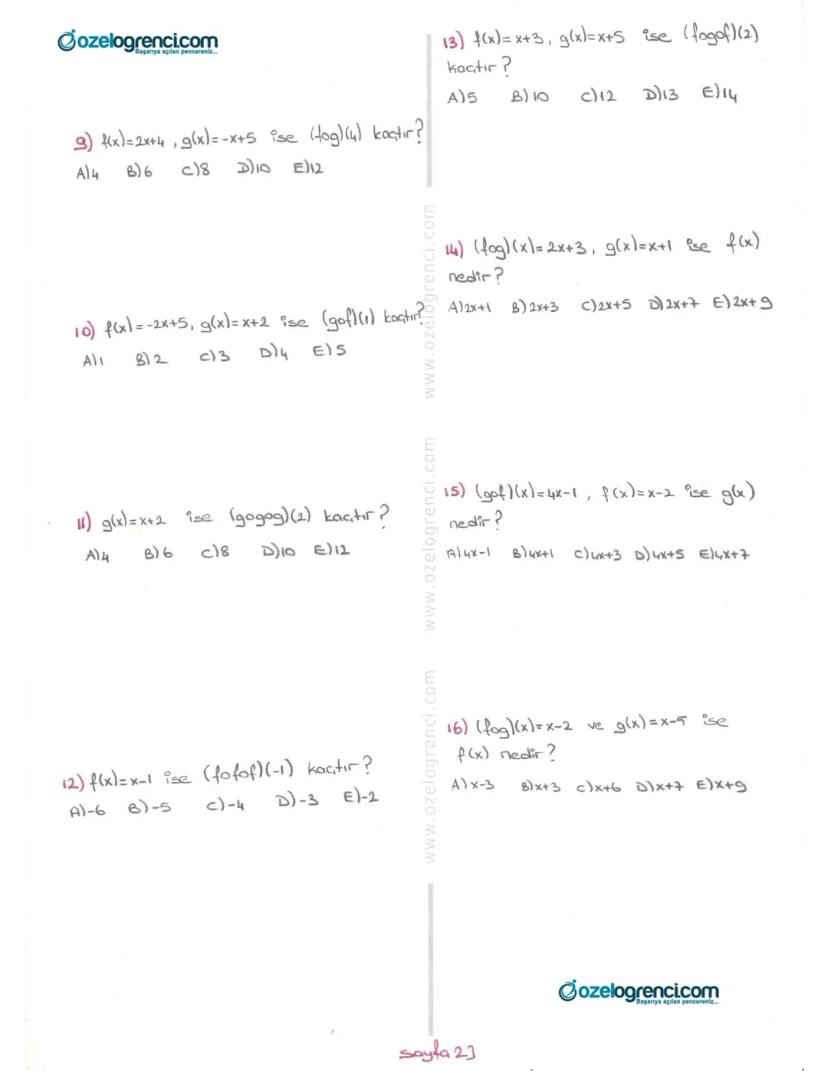 ozelogrenci.com
Başarıya açılan pencereniz...
9) f(x)=2x+4, g(x)=-x+5 ise (fog)(4) kaçtır?
A)4 B)6 C)8 D)10 E)12
10) f(x)=-2x+5, g(x)=x+2 ise (gof)(1) kaçtır?
A)1 B)2 C)3 D)4 E)5
11) g(x)=x+2 ise (gogog)(2) kaçtır?
A)4 B)6 C)8 D)10 E)12
12) f(x)=x-1 ise (fofof)(-1) kaçtır?
A)-6 B)-5 C)-4 D)-3 E)-2
www.ozelogrenci.com
www.ozelogrenci.com
www.ozelogrenci.com
13) f(x)=x+3, g(x)=x+5 ise (fogof)(2)
kaçtır?
A)5 B)10 C)12 D)13 E)14
14) (fog)(x)=2x+3, g(x)=x+1 ise f(x)
nedir?
A)2x+1 B)2x+3 C)2x+5 D)2x+7 E)2x+9
15) (gof)(x)=4x-1, f(x)=x-2 ise g(x)
nedir?
A)4x-1 B)4x+1 C)4x+3 D)4x+5 E)4x+7
16) (fog)(x)=x-2 ve g(x)=x-5 ise
f(x) nedir?
A)x-3 B)x+3 C)x+6 D)x+7 E)x+9
ozelogrenci.com
Başarıya açılan pencereniz...